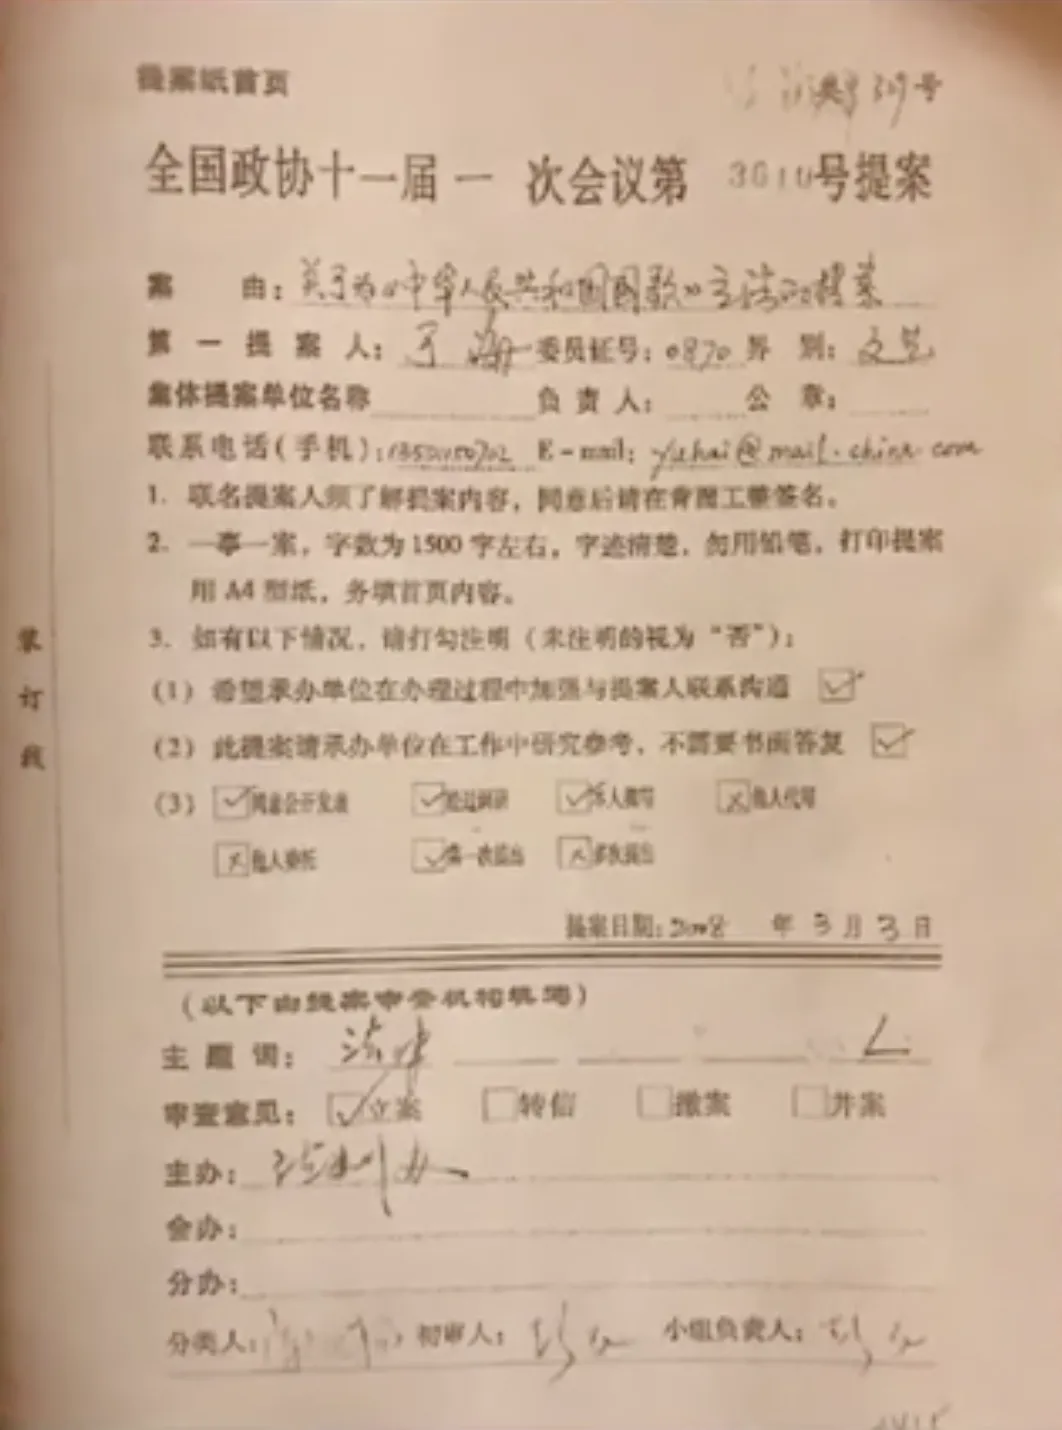 提案纸首页
号
全国政协十一届一次会议第3610号提案
案由：关于为《中华人民共和国国歌》立法的提案
第一提案人：于海 委员证号：0870 界别：文艺
集体提案单位名称 负责人： 公章：
联系电话(手机)： E-mail：yuhai@mail.china.com
1. 联名提案人须了解提案内容，同意后请在背面工整签名。
2. 一事一案，字数为1500字左右，字迹清楚，勿用铅笔，打印提案
用A4型纸，务填首页内容。
3. 如有以下情况，请打勾注明（未注明的视为“否”）：
(1) 希望承办单位在办理过程中加强与提案人联系沟通
(2) 此提案请承办单位在工作中研究参考，不需要书面答复
(3) 同意公开发表 经过调研 本人撰写 他人代写
他人委托 第一次提出 多次提出
装订线
提案日期：2008年3月3日
（以下由提案审查机构填写）
主题词：法律
审查意见：立案 转信 撤案 并案
主办：法制办
会办：
分办：
分类人： 初审人： 小组负责人：